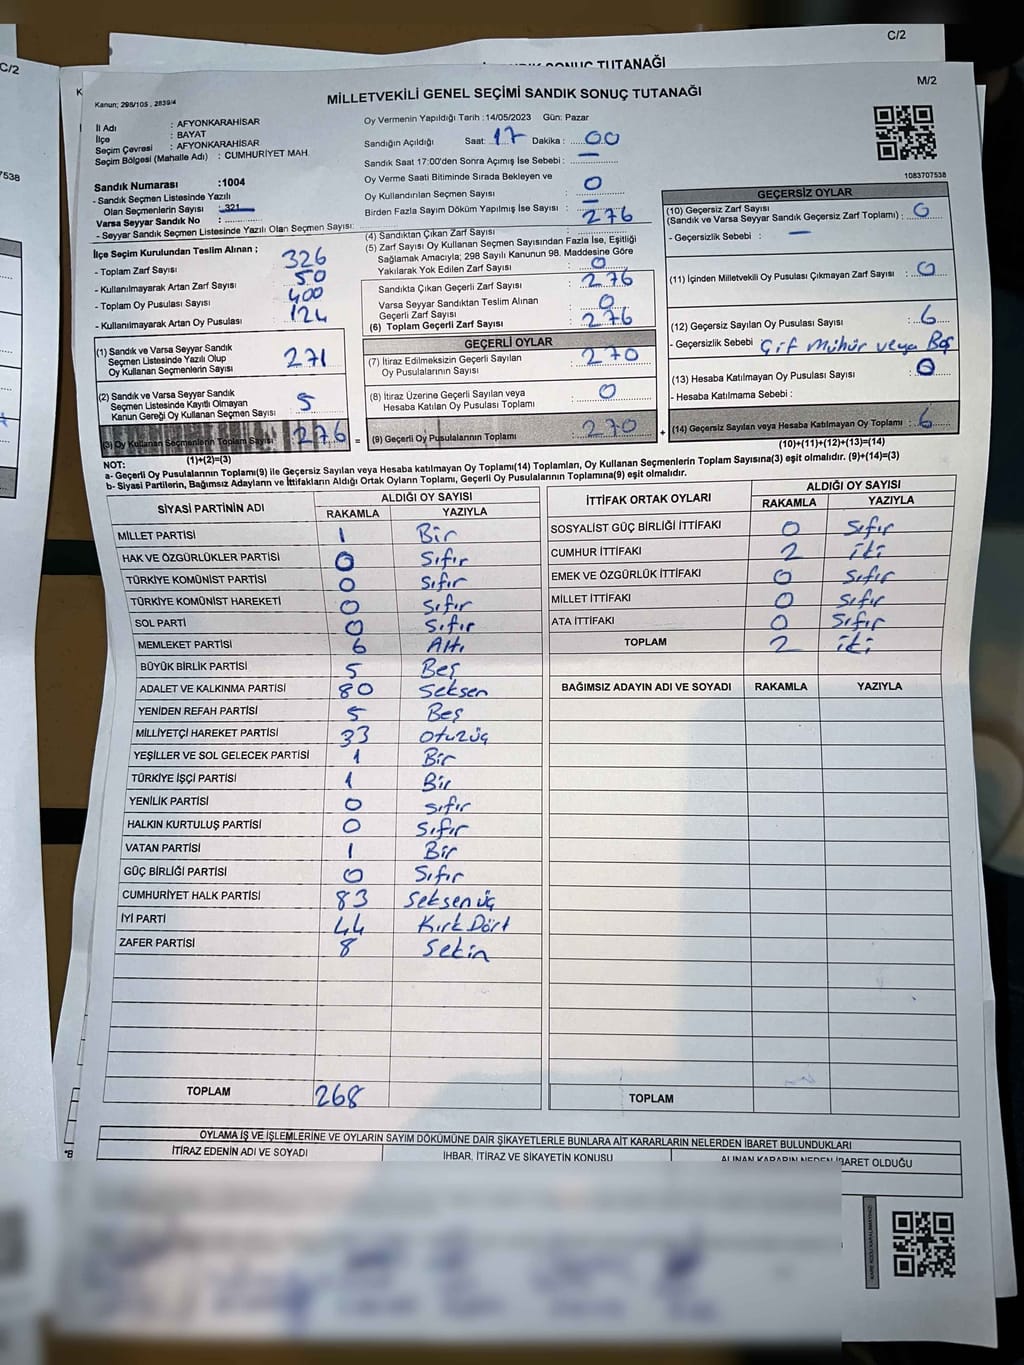 C/2
C/2
SONUÇ TUTANAĞI
M/2
Kanun; 298/105 , 2839/4
MİLLETVEKİLİ GENEL SEÇİMİ SANDIK SONUÇ TUTANAĞI
İl Adı : AFYONKARAHİSAR
İlçe : BAYAT
Seçim Çevresi : AFYONKARAHİSAR
Seçim Bölgesi (Mahalle Adı) : CUMHURİYET MAH.
Sandık Numarası :1004
- Sandık Seçmen Listesinde Yazılı
Olan Seçmenlerin Sayısı : 321
Varsa Seyyar Sandık No :
- Seyyar Sandık Seçmen Listesinde Yazılı Olan Seçmen Sayısı:
Oy Vermenin Yapıldığı Tarih : 14/05/2023 Gün: Pazar
Sandığın Açıldığı Saat: 17 Dakika : 00
Sandık Saat 17:00'den Sonra Açımış İse Sebebi : —
Oy Verme Saati Bitiminde Sırada Bekleyen ve
Oy Kullandırılan Seçmen Sayısı : 0
Birden Fazla Sayım Döküm Yapılmış İse Sayısı : —
1083707538
7538
İlçe Seçim Kurulundan Teslim Alınan ;
- Toplam Zarf Sayısı 326
- Kullanılmayarak Artan Zarf Sayısı 50
- Toplam Oy Pusulası Sayısı 400
- Kullanılmayarak Artan Oy Pusulası 124
(1) Sandık ve Varsa Seyyar Sandık
Seçmen Listesinde Yazılı Olup
Oy Kullanan Seçmenlerin Sayısı 271
(2) Sandık ve Varsa Seyyar Sandık
Seçmen Listesinde Kayıtlı Olmayan
Kanun Gereği Oy Kullanan Seçmen Sayısı 5
(3) Oy Kullanan Seçmenlerin Toplam Sayısı 276
(1)+(2)=(3)
(4) Sandıktan Çıkan Zarf Sayısı 276
(5) Zarf Sayısı Oy Kullanan Seçmen Sayısından Fazla İse, Eşitliği
Sağlamak Amacıyla; 298 Sayılı Kanunun 98. Maddesine Göre
Yakılarak Yok Edilen Zarf Sayısı 0
Sandıkta Çıkan Geçerli Zarf Sayısı 276
Varsa Seyyar Sandıktan Teslim Alınan
Geçerli Zarf Sayısı 0
(6) Toplam Geçerli Zarf Sayısı 276
GEÇERLİ OYLAR
(7) İtiraz Edilmeksizin Geçerli Sayılan
Oy Pusulalarının Sayısı 270
(8) İtiraz Üzerine Geçerli Sayılan veya
Hesaba Katılan Oy Pusulası Toplamı 0
= (9) Geçerli Oy Pusulalarının Toplamı 270
GEÇERSİZ OYLAR
(10) Geçersiz Zarf Sayısı
(Sandık ve Varsa Seyyar Sandık Geçersiz Zarf Toplamı) : 0
- Geçersizlik Sebebi : —
(11) İçinden Milletvekili Oy Pusulası Çıkmayan Zarf Sayısı : 0
(12) Geçersiz Sayılan Oy Pusulası Sayısı : 6
- Geçersizlik Sebebi Çif Mühür veya Boş
(13) Hesaba Katılmayan Oy Pusulası Sayısı : 0
- Hesaba Katılmama Sebebi :
+ (14) Geçersiz Sayılan veya Hesaba Katılmayan Oy Toplamı : 6
(10)+(11)+(12)+(13)=(14)
NOT:
a- Geçerli Oy Pusulalarının Toplamı(9) ile Geçersiz Sayılan veya Hesaba katılmayan Oy Toplamı(14) Toplamları, Oy Kullanan Seçmenlerin Toplam Sayısına(3) eşit olmalıdır. (9)+(14)=(3)
b- Siyasi Partilerin, Bağımsız Adayların ve İttifakların Aldığı Ortak Oyların Toplamı, Geçerli Oy Pusulalarının Toplamına(9) eşit olmalıdır.
SİYASİ PARTİNİN ADI ALDIĞI OY SAYISI
RAKAMLA YAZIYLA
MİLLET PARTİSİ 1 Bir
HAK VE ÖZGÜRLÜKLER PARTİSİ 0 Sıfır
TÜRKİYE KOMÜNİST PARTİSİ 0 Sıfır
TÜRKİYE KOMÜNİST HAREKETİ 0 Sıfır
SOL PARTİ 0 Sıfır
MEMLEKET PARTİSİ 6 Altı
BÜYÜK BİRLİK PARTİSİ 5 Beş
ADALET VE KALKINMA PARTİSİ 80 Seksen
YENİDEN REFAH PARTİSİ 5 Beş
MİLLİYETÇİ HAREKET PARTİSİ 33 Otuzüç
YEŞİLLER VE SOL GELECEK PARTİSİ 1 Bir
TÜRKİYE İŞÇİ PARTİSİ 1 Bir
YENİLİK PARTİSİ 0 Sıfır
HALKIN KURTULUŞ PARTİSİ 0 Sıfır
VATAN PARTİSİ 1 Bir
GÜÇ BİRLİĞİ PARTİSİ 0 Sıfır
CUMHURİYET HALK PARTİSİ 83 Seksenüç
İYİ PARTİ 44 Kırk Dört
ZAFER PARTİSİ 8 Sekin
TOPLAM 268
İTTİFAK ORTAK OYLARI ALDIĞI OY SAYISI
RAKAMLA YAZIYLA
SOSYALİST GÜÇ BİRLİĞİ İTTİFAKI 0 Sıfır
CUMHUR İTTİFAKI 2 iki
EMEK VE ÖZGÜRLÜK İTTİFAKI 0 Sıfır
MİLLET İTTİFAKI 0 Sıfır
ATA İTTİFAKI 0 Sıfır
TOPLAM 2 iki
BAĞIMSIZ ADAYIN ADI VE SOYADI RAKAMLA YAZIYLA
TOPLAM
OYLAMA İŞ VE İŞLEMLERİNE VE OYLARIN SAYIM DÖKÜMÜNE DAİR ŞİKAYETLERLE BUNLARA AİT KARARLARIN NELERDEN İBARET BULUNDUKLARI
İTİRAZ EDENİN ADI VE SOYADI İHBAR, İTİRAZ VE ŞİKAYETİN KONUSU ALINAN KARARIN NEDEN İBARET OLDUĞU